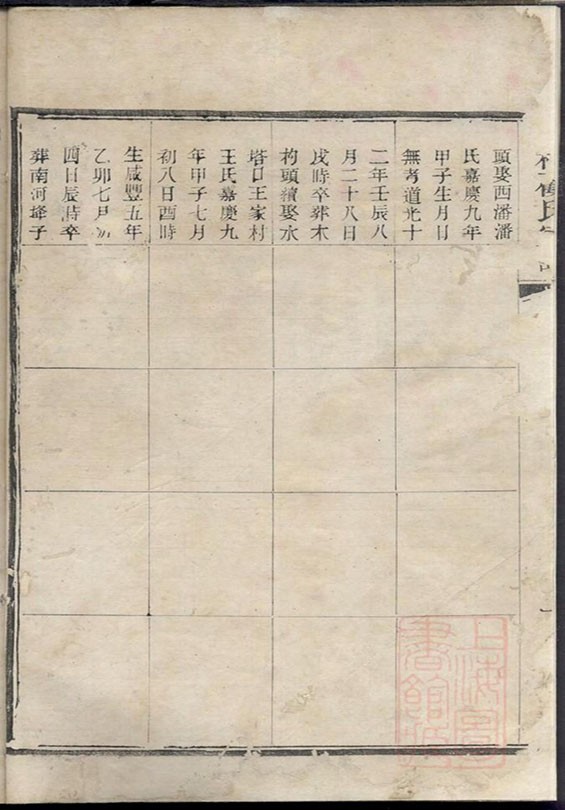 頭娶西潘潘
氏嘉慶九年
甲子生月日
無考道光十
二年壬辰八
月二十八日
戌時卒葬木
杓頭續娶水
塔口王家村
王氏嘉慶九
年甲子七月
初八日酉時
生咸豐五年
乙卯七月初
四日辰時卒
葬南河塝子
上海圖
書館藏